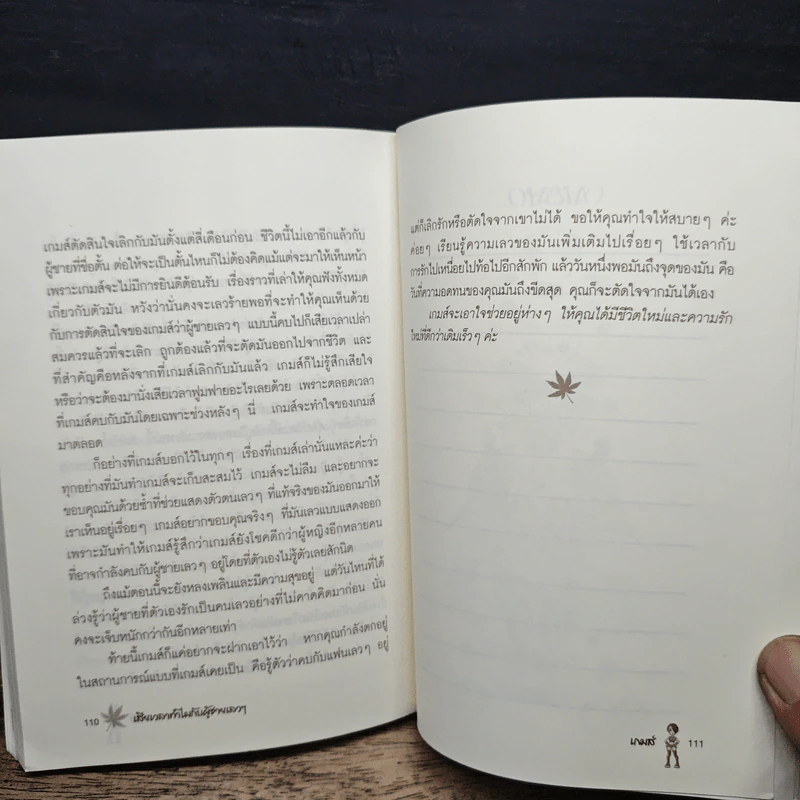 เกมส์ตัดสินใจเลิกกับมันตั้งแต่สี่เดือนก่อน ชีวิตนี้ไม่เอาอีกแล้วกับ
ผู้ชายที่ชื่อตั้น ต่อให้จะเป็นตั้นไหนก็ไม่ต้องคิดแม้แต่จะมาให้เห็นหน้า
เพราะเกมส์จะไม่มีการยินดีต้อนรับ เรื่องราวที่เล่าให้คุณฟังทั้งหมด
เกี่ยวกับตัวมัน หวังว่านั่นคงจะเลวร้ายพอที่จะทำให้คุณเห็นด้วย
กับการตัดสินใจของเกมส์ว่าผู้ชายเลวๆ แบบนี้คบไปก็เสียเวลาเปล่า
สมควรแล้วที่จะเลิก ถูกต้องแล้วที่จะตัดมันออกไปจากชีวิต และ
ที่สำคัญคือหลังจากที่เกมส์เลิกกับมันแล้ว เกมส์ก็ไม่รู้สึกเสียใจ
หรือว่าจะต้องมานั่งเสียเวลาฟูมฟายอะไรเลยด้วย เพราะตลอดเวลา
ที่เกมส์คบกับมันโดยเฉพาะช่วงหลังๆ นี่ เกมส์จะทำใจของเกมส์
มาตลอด
ก็อย่างที่เกมส์บอกไว้ในทุกๆ เรื่องที่เกมส์เล่านั่นแหละค่ะว่า
ทุกอย่างที่มันทำเกมส์จะเก็บสะสมไว้ เกมส์จะไม่ลืม และอยากจะ
ขอบคุณมันด้วยซ้ำที่ช่วยแสดงตัวตนเลวๆ ที่แท้จริงของมันออกมาให้
เราเห็นอยู่เรื่อยๆ เกมส์อยากขอบคุณจริงๆ ที่มันเลวแบบแสดงออก
เพราะมันทำให้เกมส์รู้สึกว่าเกมส์ยังโชคดีกว่าผู้หญิงอีกหลายคน
ที่อาจกำลังคบกับผู้ชายเลวๆ อยู่โดยที่ตัวเองไม่รู้ตัวเลยสักนิด
ถึงแม้ตอนนี้จะยังหลงเพลินและมีความสุขอยู่ แต่วันไหนที่ได้
ล่วงรู้ว่าผู้ชายที่ตัวเองรักเป็นคนเลวอย่างที่ไม่คาดคิดมาก่อน นั่น
คงจะเจ็บหนักกว่ากันอีกหลายเท่า
ท้ายนี้เกมส์ก็แค่อยากจะฝากเอาไว้ว่า หากคุณกำลังตกอยู่
ในสถานการณ์แบบที่เกมส์เคยเป็น คือรู้ตัวว่าคบกับแฟนเลวๆ อยู่
110 เสียเวลาทำไมกับผู้ชายเลวๆ
แต่ก็เลิกรักหรือตัดใจจากเขาไม่ได้ ขอให้คุณทำใจให้สบายๆ ค่ะ
ค่อยๆ เรียนรู้ความเลวของมันเพิ่มเติมไปเรื่อยๆ ใช้เวลากับ
การรักไปเหนื่อยไปท้อไปอีกสักพัก แล้ววันหนึ่งพอมันถึงจุดของมัน คือ
วันที่ความอดทนของคุณมันถึงขีดสุด คุณก็จะตัดใจจากมันได้เอง
เกมส์จะเอาใจช่วยอยู่ห่างๆ ให้คุณได้มีชีวิตใหม่และความรัก
ใหม่ที่ดีกว่าเดิมเร็วๆ ค่ะ
เกมส์ 111